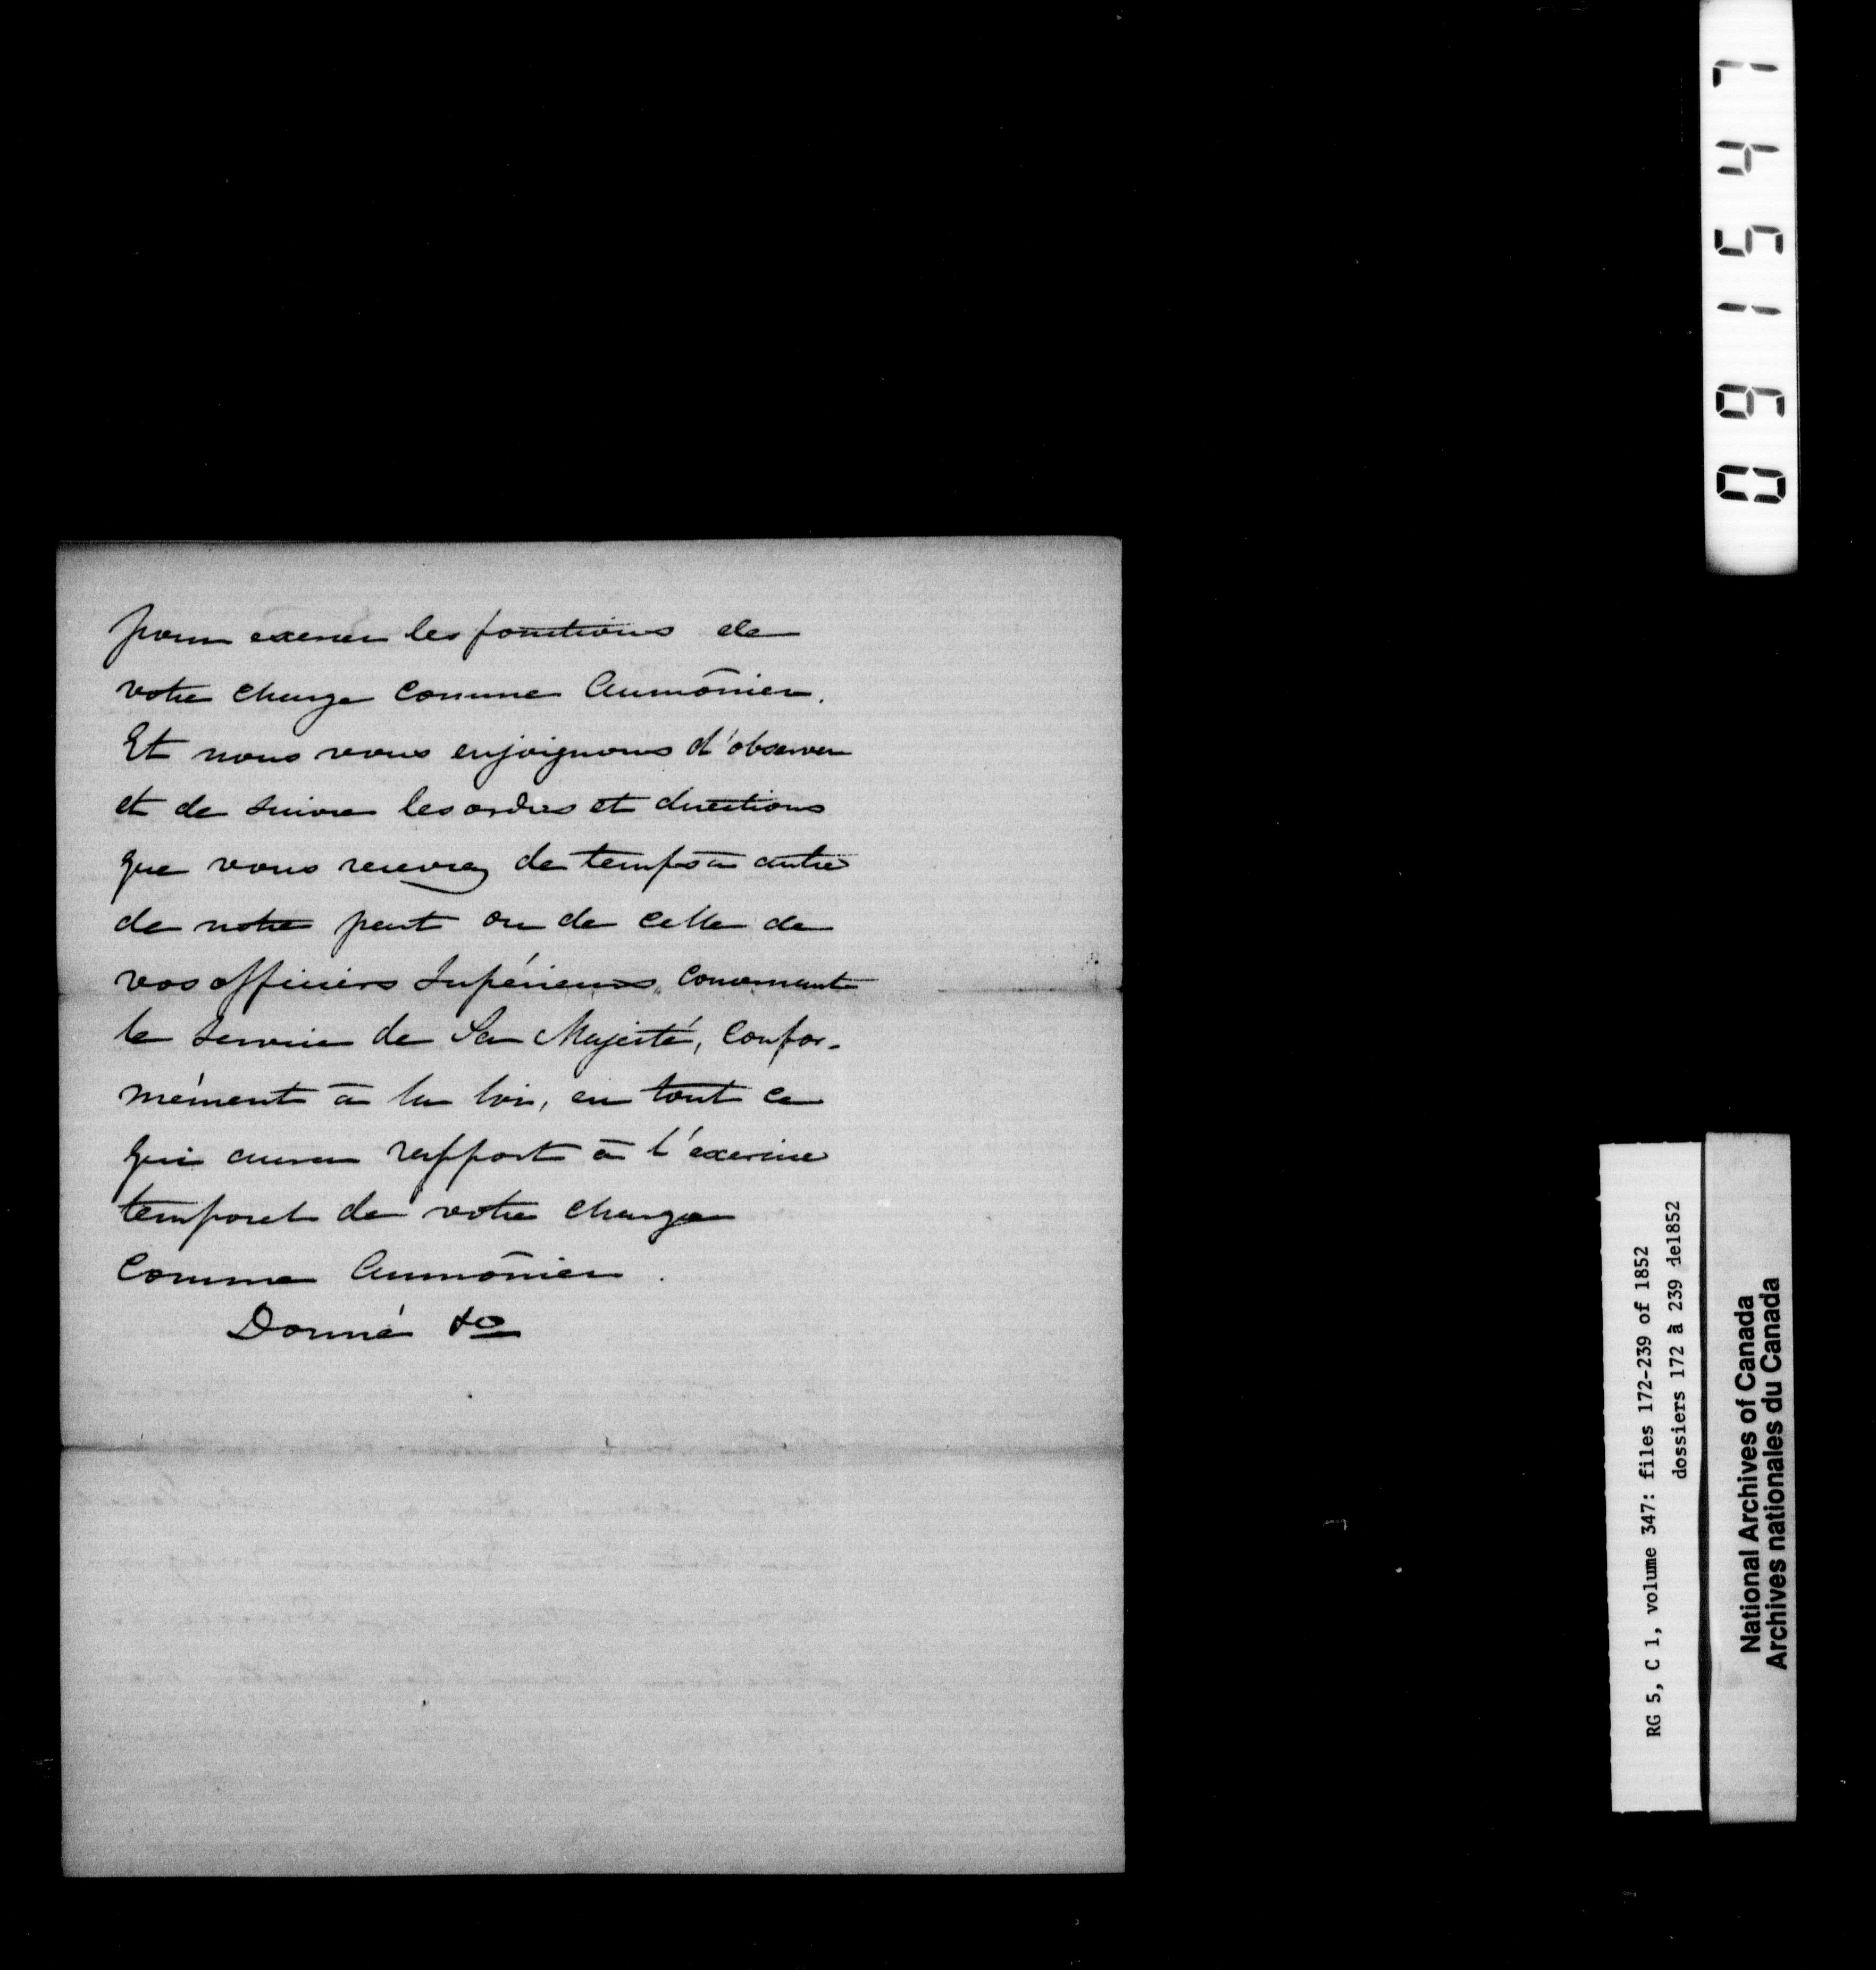 pour exercer les fonctions de
votre charge comme Aumônier.
Et nous vous enjoignons d'observer
et de suivre les ordres et directions
que vous recevrez de temps à autre
de notre part ou de celle de
vos officiers Supérieurs, concernant
le service de Sa Majesté, confor-
mément à la loi, en tout ce
qui aura rapport à l'exercice
temporel de votre charge
comme Aumônier.
Donné &c
091547
RG 5, C 1, volume 347: files 172-239 of 1852
dossiers 172 à 239 de1852
National Archives of Canada
Archives nationales du Canada